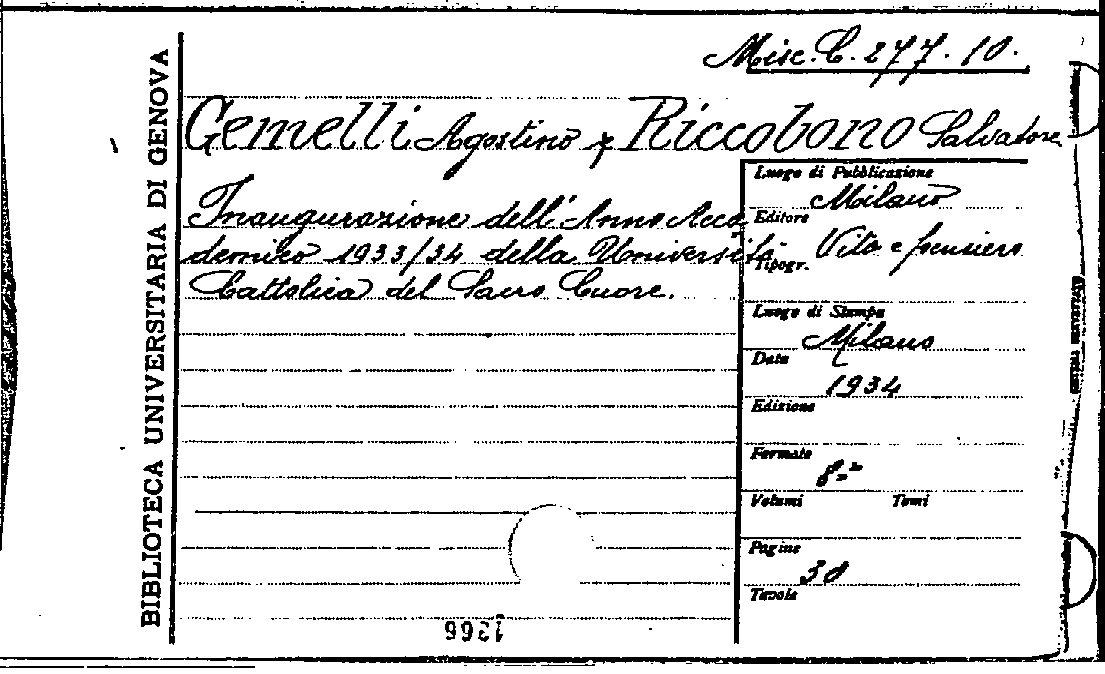 Misc. C. 277. 10.
Gemelli Agostino e Riccobono Salvatore
Inaugurazione dell'Anno Acca
demico 1933/34 della Università
Cattolica del Sacro Cuore.
BIBLIOTECA UNIVERSITARIA DI GENOVA
Luogo di Pubblicazione
Milano
Editore
Vita e pensiero
Tipogr.
Luogo di Stampa
Milano
Data
1934
Edizione
Formato
8°
Volumi Tomi
Pagine
38
Tavole
1366